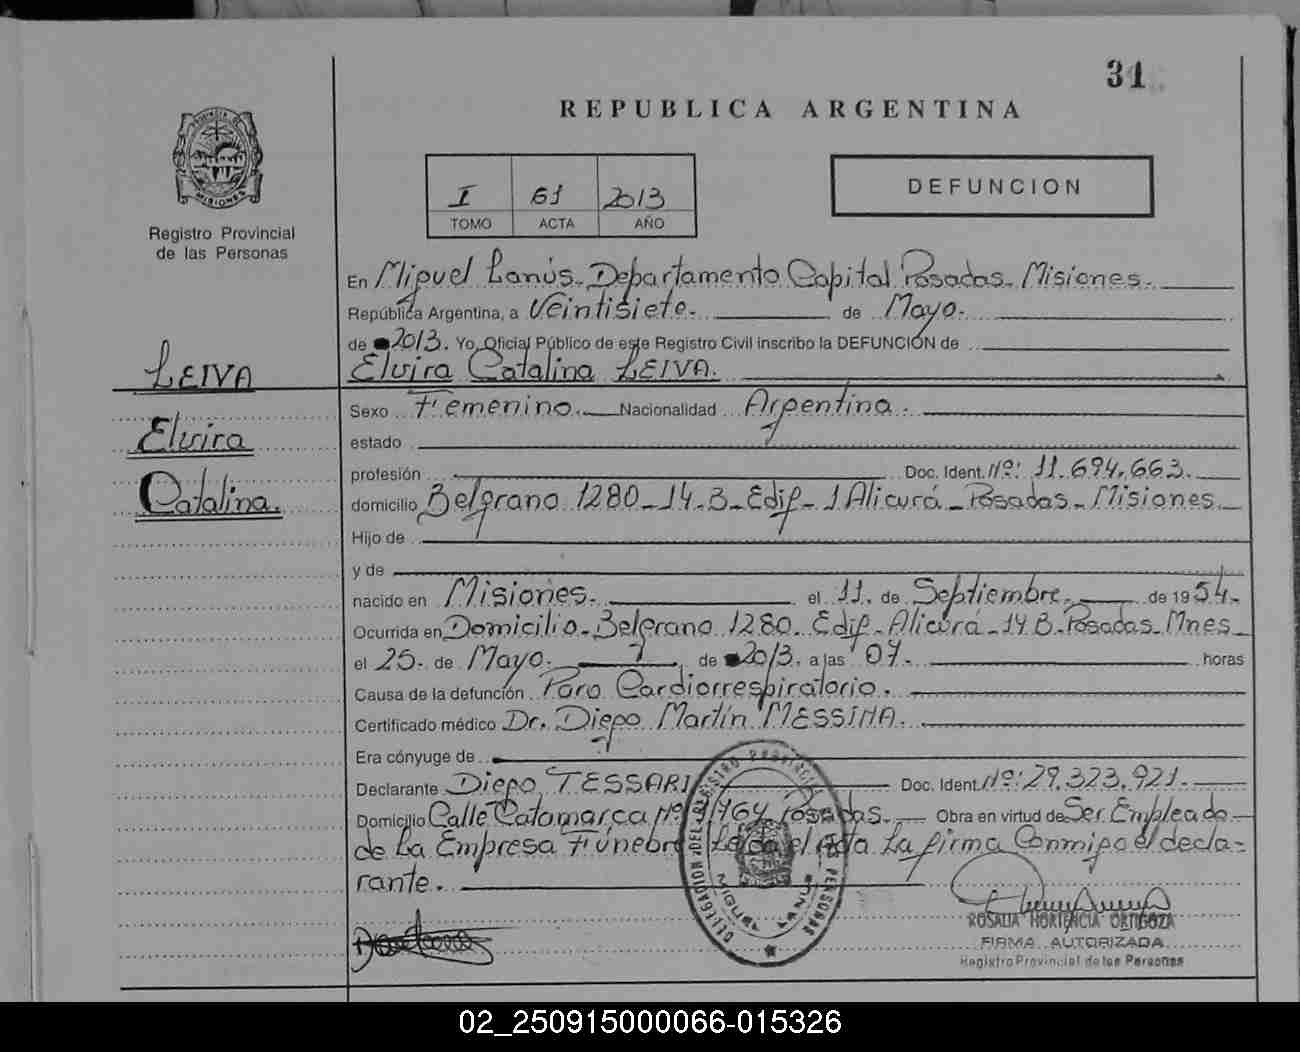 31
REPUBLICA ARGENTINA
PROVINCIA DE
MISIONES
Registro Provincial
de las Personas
I 61 2013
TOMO ACTA AÑO
DEFUNCION
LEIVA
Elvira
Catalina.
En Miguel Lanús. Departamento Capital Posadas. Misiones.
República Argentina, a Veintisiete. de Mayo.
de 2013. Yo, Oficial Público de este Registro Civil inscribo la DEFUNCIÓN de
Elvira Catalina LEIVA.
Sexo Femenino. Nacionalidad Argentina.
estado
profesión Doc. Ident. Nº: 11.694.663.
domicilio Belgrano 1280-14.B-Edif-1 Alicurá-Posadas-Misiones.
Hijo de
y de
nacido en Misiones. el 11. de Septiembre. de 1954.
Ocurrida en Domicilio-Belgrano 1280. Edif-Alicurá-14 B-Posadas-Mnes
el 25. de Mayo. de 2013. a las 07. horas
Causa de la defunción Paro Cardiorrespiratorio.
Certificado médico Dr. Diego Martín MESSINA.
Era cónyuge de
Declarante Diego TESSARI Doc. Ident. Nº: 29.323.921.
Domicilio Calle Catamarca Nº 1764 Posadas. Obra en virtud de Ser Empleado
de La Empresa Fúnebre Leída el Acta La firma Conmigo el decla-
rante.
DELEGACION DEL REGISTRO PROVINCIAL DE LAS PERSONAS
MIGUEL LANUS
ROSALIA HORTENCIA ORTIGOZA
FIRMA AUTORIZADA
Registro Provincial de las Personas
02_250915000066-015326